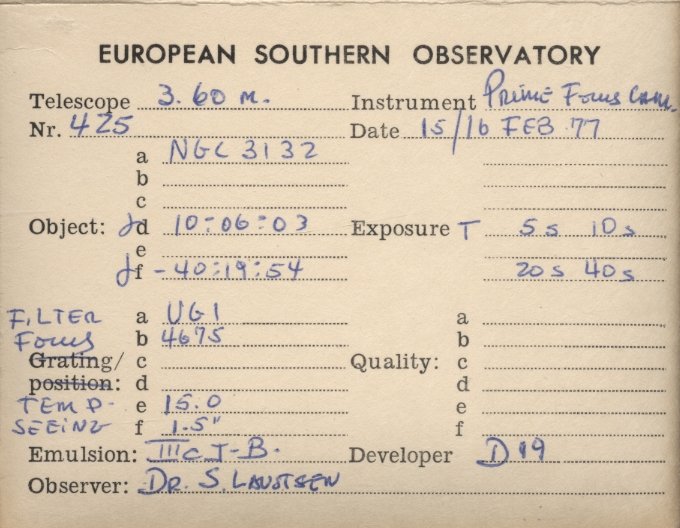 EUROPEAN SOUTHERN OBSERVATORY
Telescope 3.60 m. Instrument PRIME Focus CAM.
Nr. 425 Date 15/16 FEB 77
a NGC 3132
b
c
Object: d 10:06:03 Exposure T 5s 10s
e
f -40:19:54 20s 40s
FILTER a UG1 a
Focus b 4675 b
Grating/ c Quality: c
position: d d
TEMP- e 15.0 e
SEEING f 1.5" f
Emulsion: IIIa J-B. Developer D19
Observer: Dr. S. LAUSTSEN